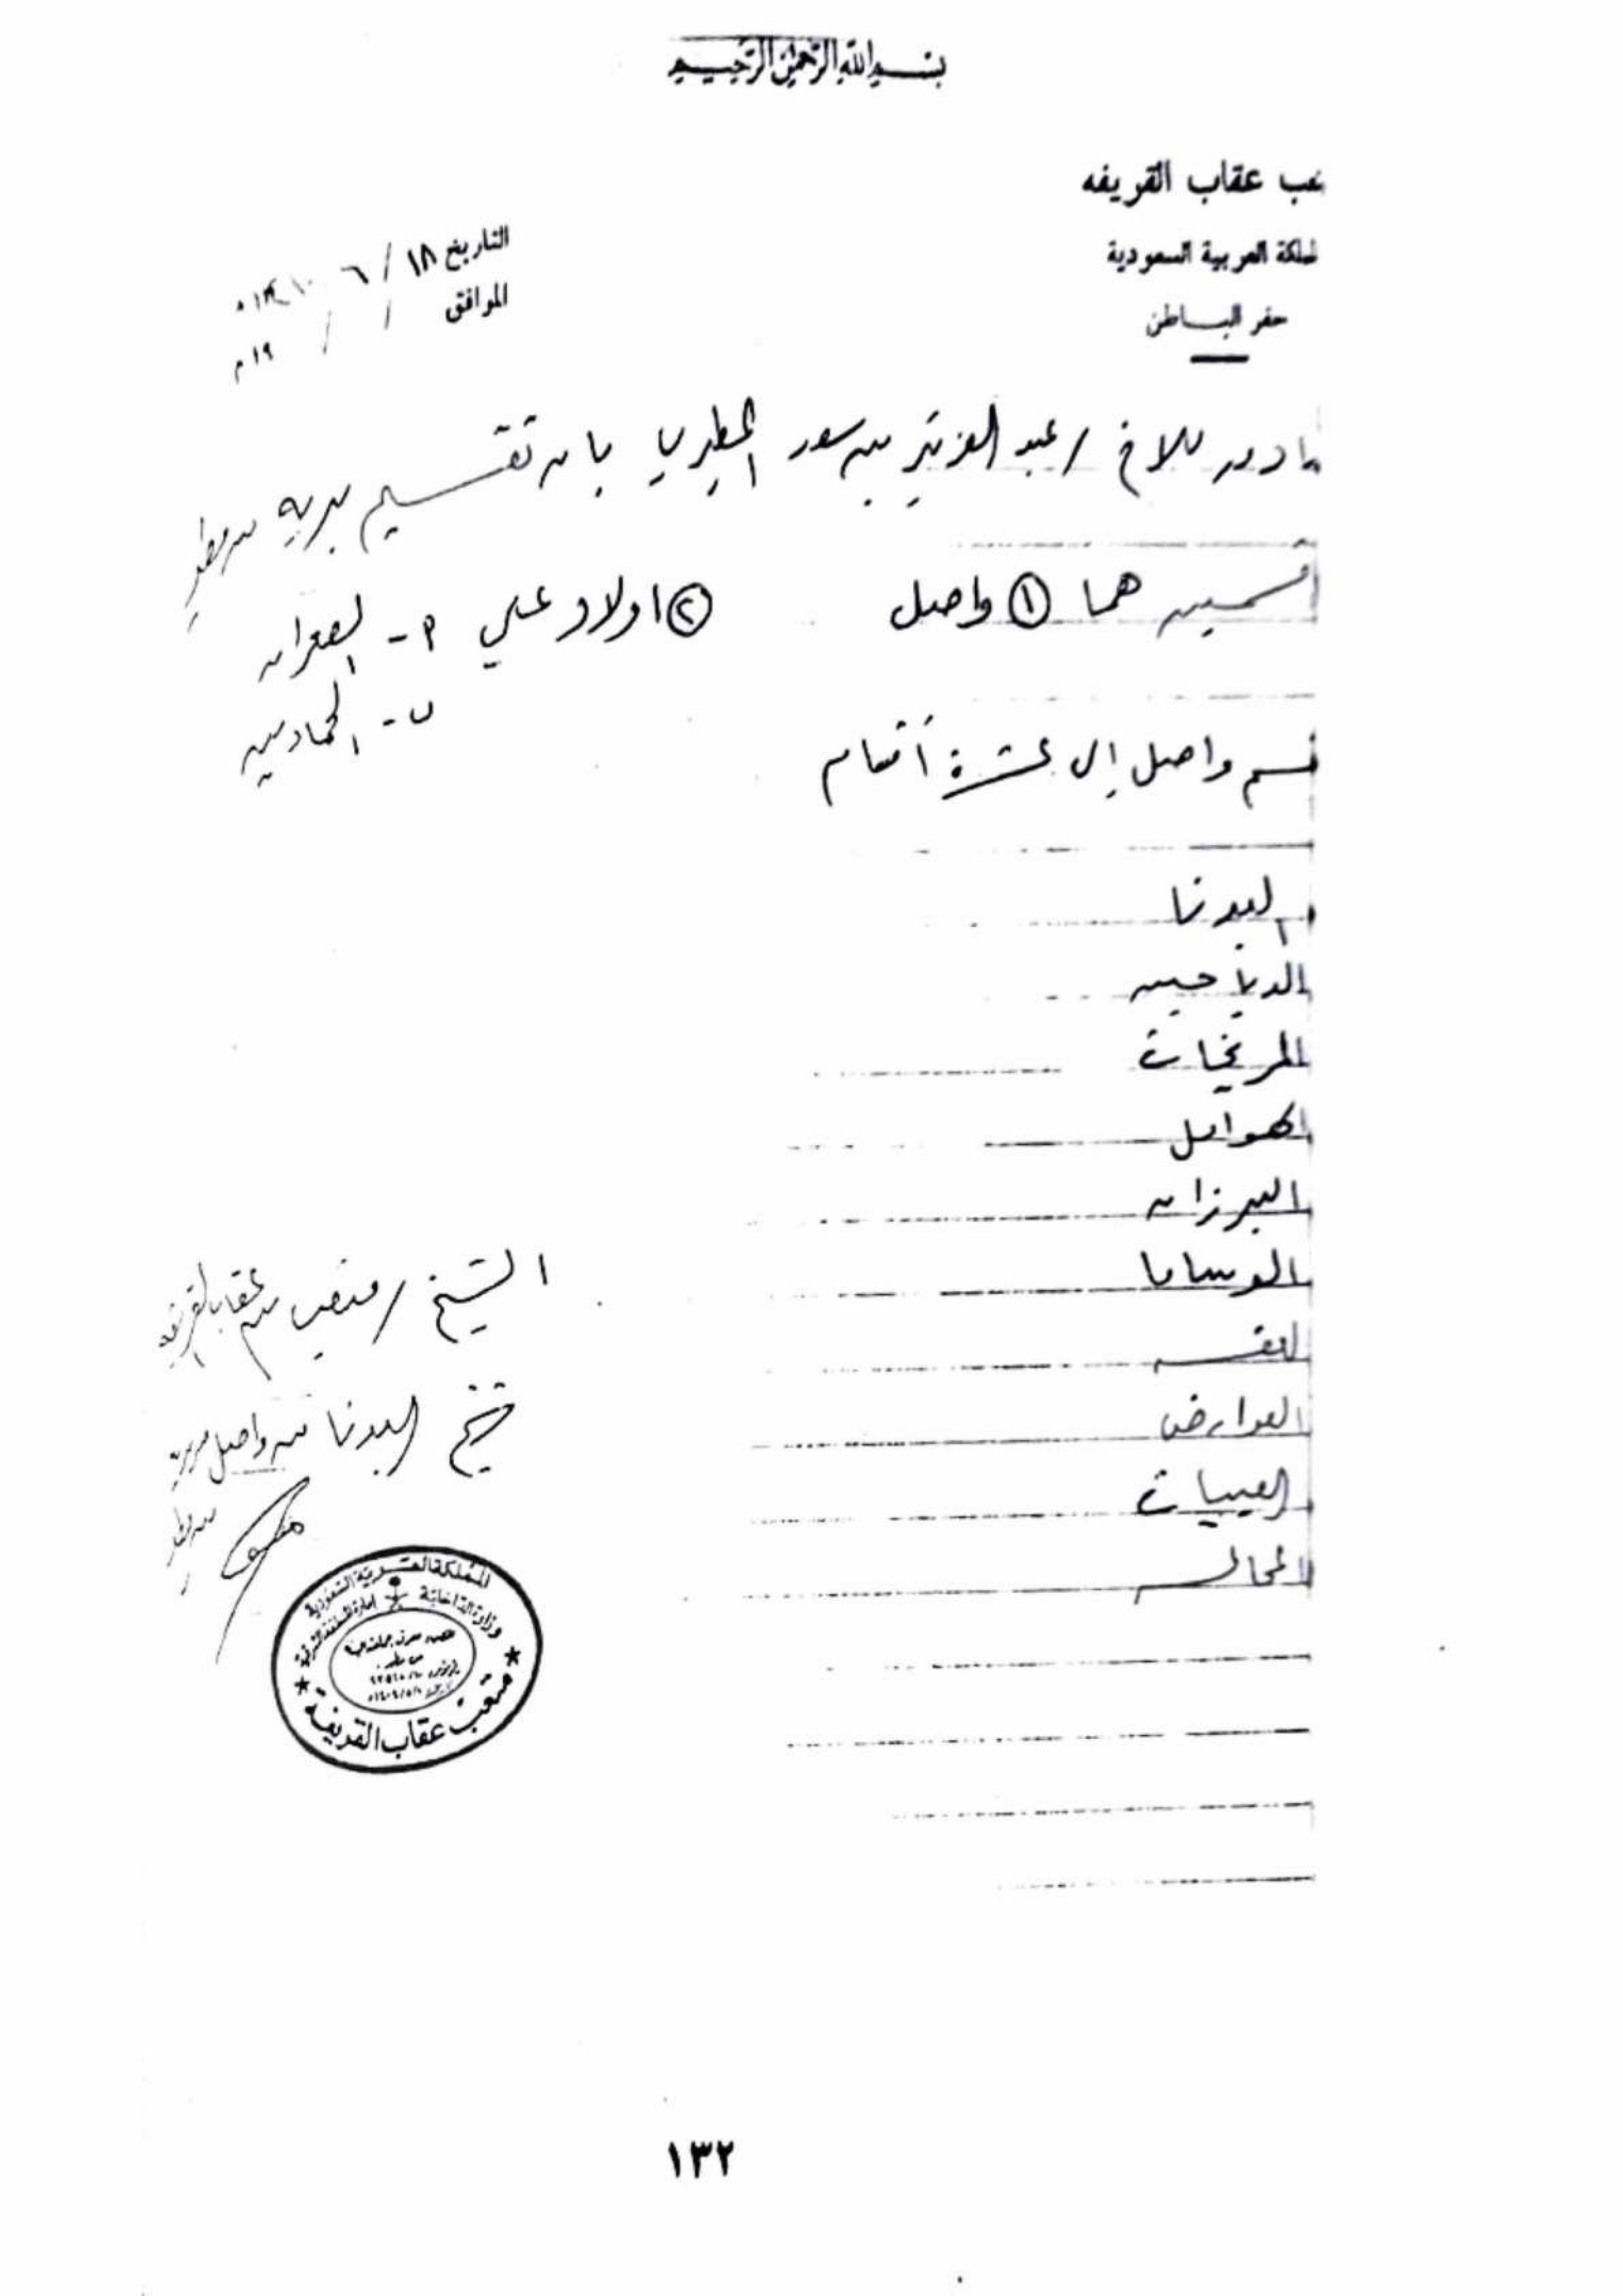 بسم الله الرحمن الرحيم
عب عقاب القريفه
لملكة العربية السعودية
حفر الباطن
التاريخ ١٨ / ٦ / ١٤١٠ هـ
الموافق / / ١٩ م
دور للاخ / عبد العزيز بن سعد المطيري بان تقسيم بريه من مطير
قسمين هما ① واصل ② اولاد علي م - الصعران
ب - الحمادين
قسم واصل إلى عشرة أقسام
البدنا
الدياحين
المريخات
الهوامل
البرزان
الوساما
العفسه
العوارض
العبيات
المحالسه
الشيخ / متعب بن عقاب القريفه
شيخ البدنا من واصل من بريه
من مطير
المملكة العربية السعودية
وزارة الداخلية امارة المنطقة الشرقية
من مطير
متعب عقاب القريفة
١٣٢